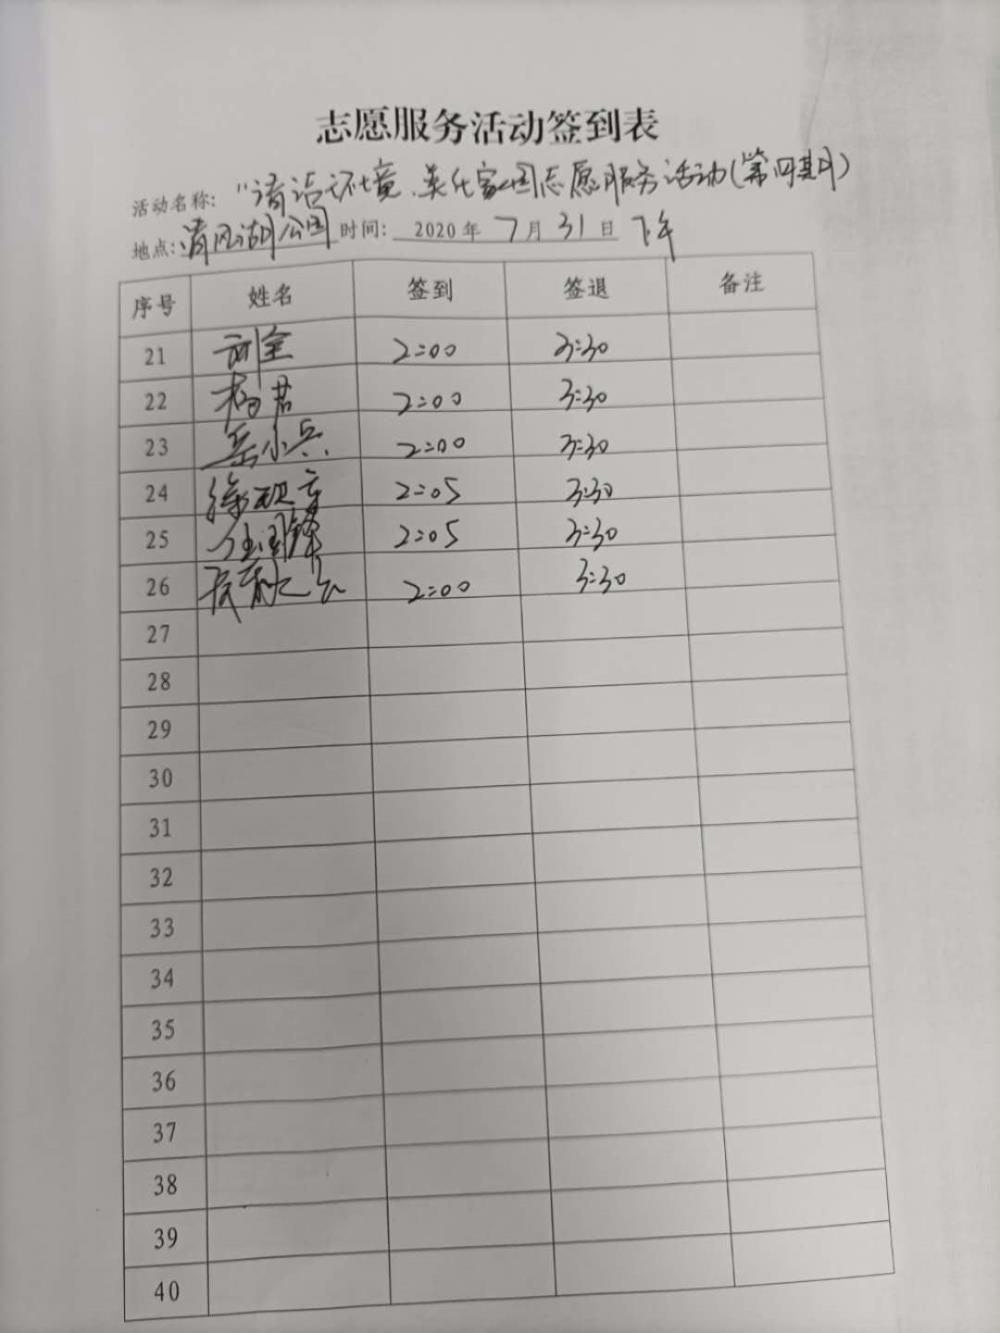 志愿服务活动签到表
活动名称: "清洁环境.美化家园志愿服务活动(第四期)
地点: 清风湖公园 时间: 2020年 7月 31日 下午
序号 姓名 签到 签退 备注
21 刘全 2:00 3:30
22 杨君 2:00 3:30
23 岳小兵 2:00 3:30
24 2:05 3:30
25 2:05 3:30
26 2:00 3:30
27
28
29
30
31
32
33
34
35
36
37
38
39
40